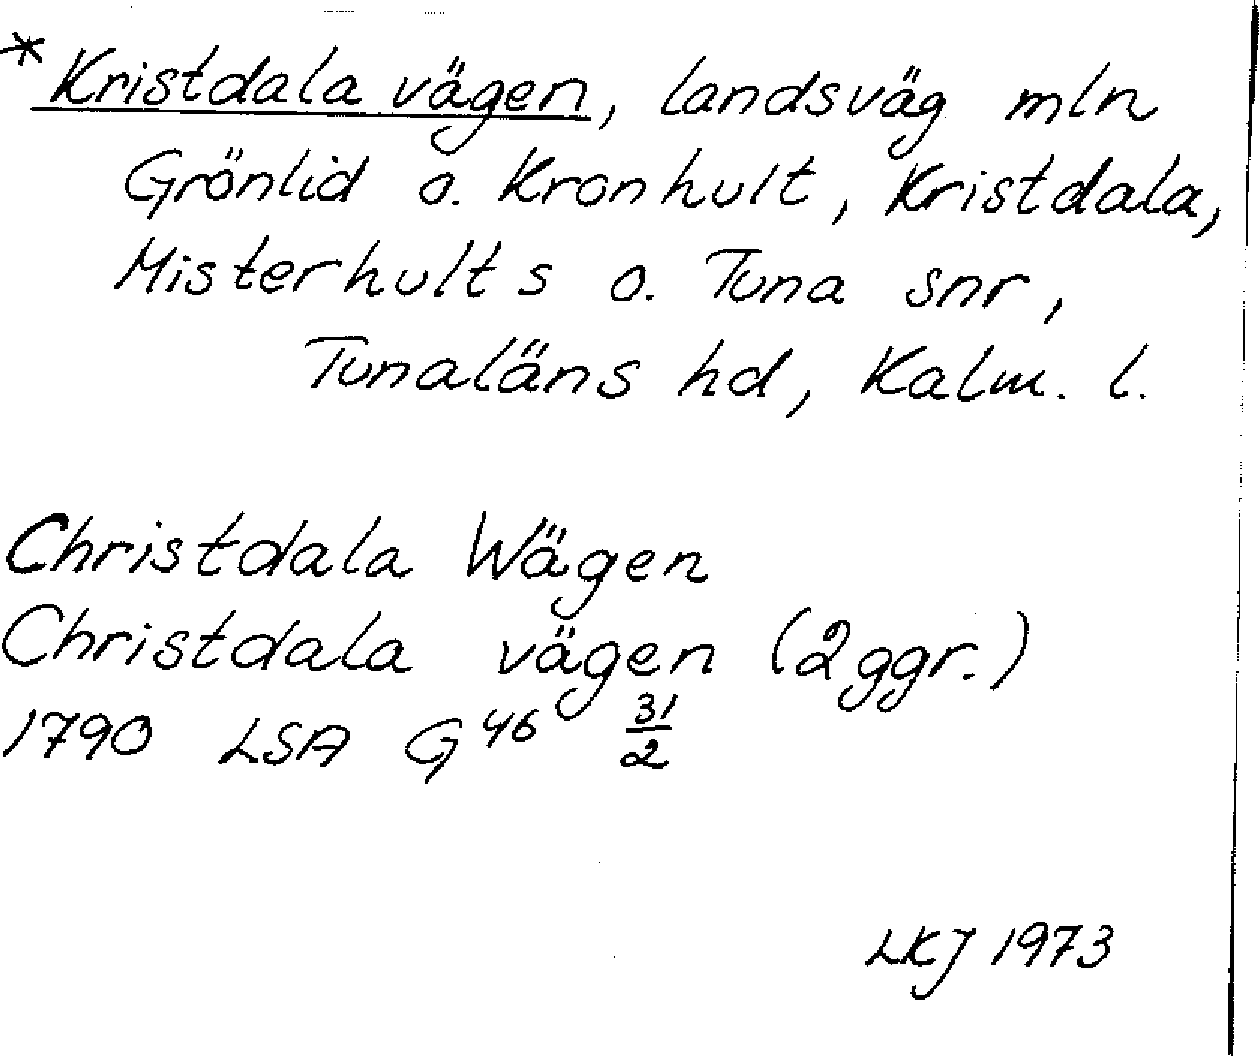 * Kristdala vägen, landsväg mln
Grönlid o. Kronhult, Kristdala,
Misterhults o. Tuna snr,
Tunaläns hd, Kalm. l.
Christdala Wägen
Christdala vägen (2 ggr.)
1790 LSA G 46 31/2
LKJ 1973